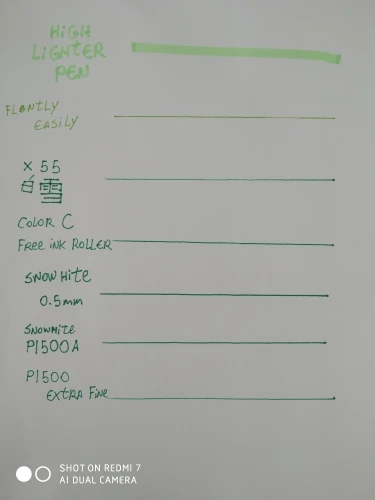 HiGH
LiGHtER
PEN
FLENtLY
EASiLY
× 55
白雪
COLOR C
FREE iNK ROLLER
SNOW HitE
0.5mm
SNOWHitE
P1500A
P1500
EXtRA FiNE
SHOT ON REDMI 7
AI DUAL CAMERA